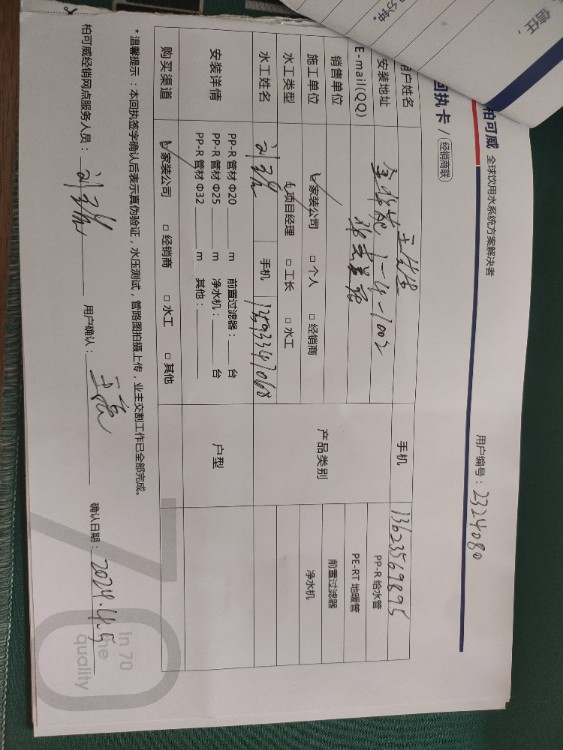 分钟。
信任,
柏可威 全球饮用水系统方案解决者
回执卡 / 经销商联
用户编号: 2324080
户姓名 手机 13623569895
安装地址 1-4-1002
E-mail(QQ)
销售单位
产品类别 PP-R 给水管
PE-RT 地暖管
前置过滤器
净水机
施工单位 家装公司 □ 个人 □ 经销商
水工类型 项目经理 □ 工长 □ 水工
水工姓名 手机
安装详情 PP-R 管材 Φ20 m 前置过滤器: 台
PP-R 管材 Φ25 m 净水机: 台
PP-R 管材 Φ32 m 其他:
户型
购买渠道 家装公司 □ 经销商 □ 水工 □ 其他
*温馨提示:本回执签字确认后表示真伪验证,水压测试,管路图拍摄上传,业主交割工作已全部完成。
柏可威经销网点服务人员: 用户确认: 确认日期: 2024.4.5
70
In 70
he
quality